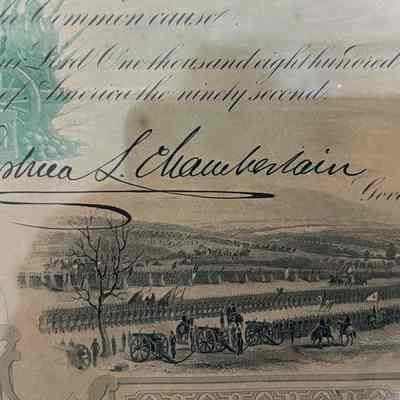 the Common cause.
our Lord One thousand eight hundred
of America the ninety second.
Joshua L. Chamberlain
Gov